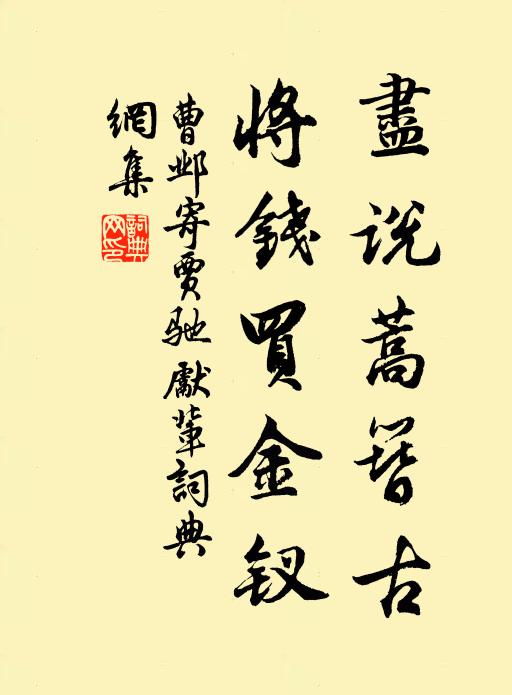 盡說蒿簪古
將錢買金釵
曹鄴寄賈馳 獻輩詞典
網集
詞典
网印